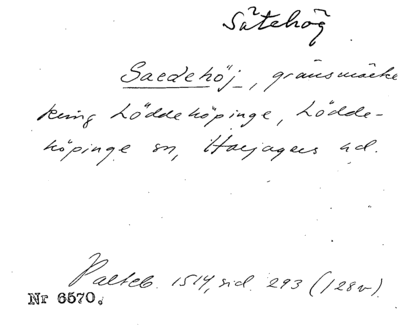 Sätehög
Saedehöj, gränsmärke
kring Löddeköpinge, Lödde-
köpinge sn, Harjagers hd.
Palteb. 1514, sid. 293 (128v).
Nr 6570.